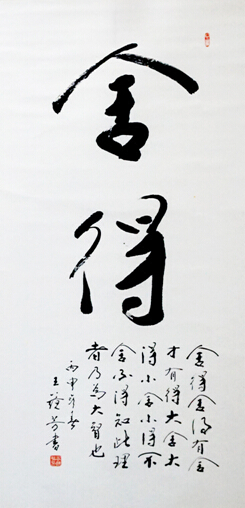 舍得
舍得舍得有舍
才有得大舍大
得小舍小得不
舍不得知此理
者乃為大智也
丙申年春
王芳书